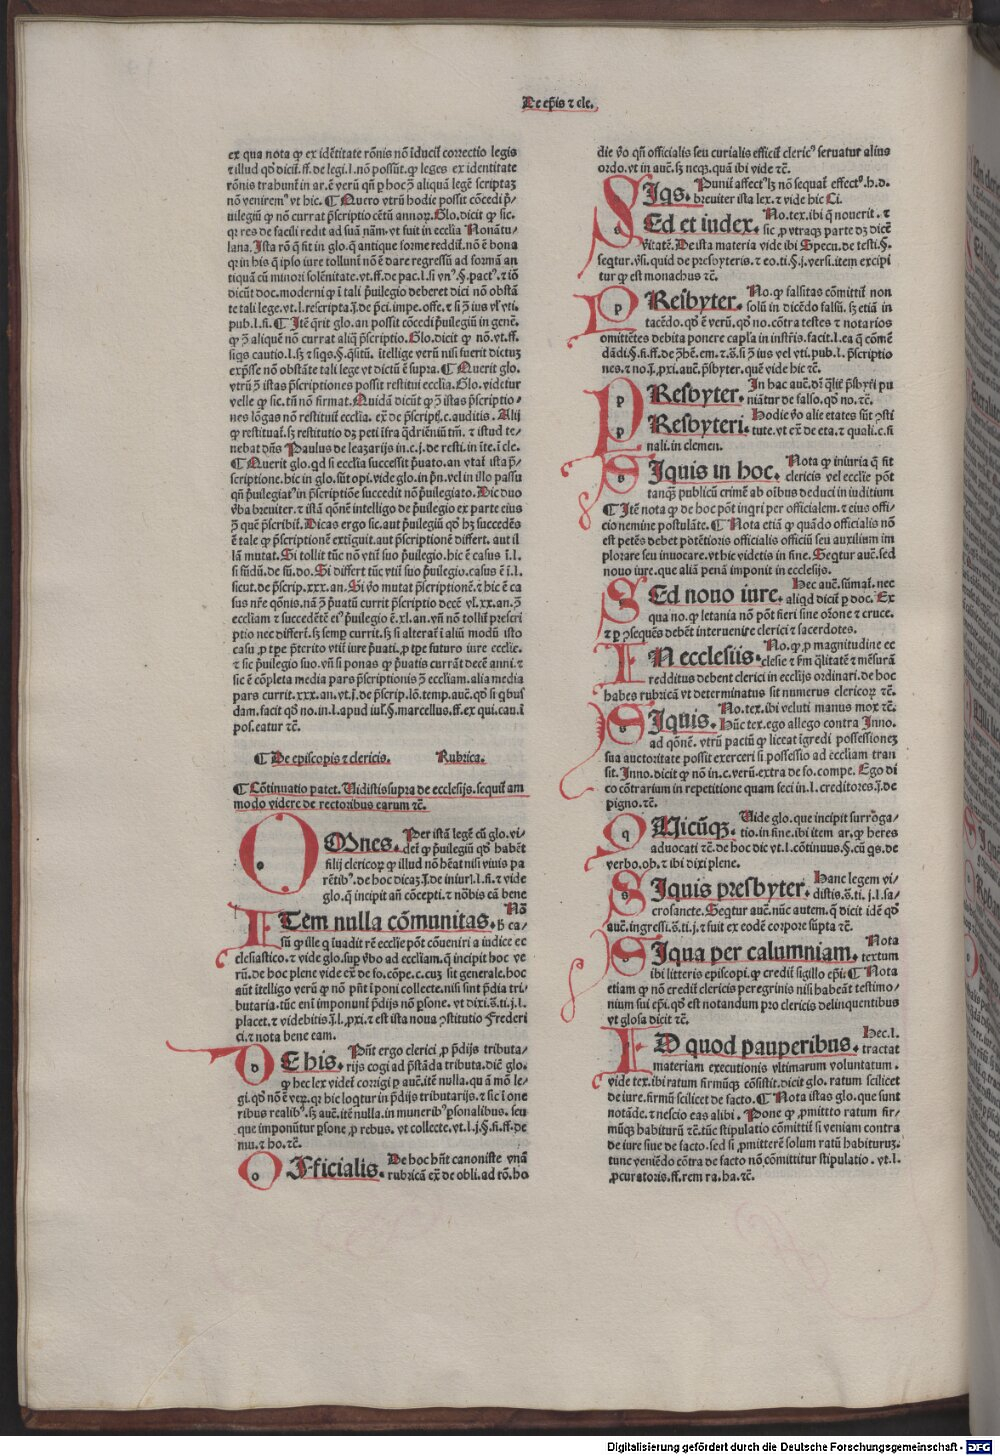 De ep̄is ⁊ cle.
ex qua nota ꝙ ex idētitate rōnis nō īducit̄ correctio legis
⁊ illud qd̄ dicit̄. ff. de legi. l. nō possūt. ꝙ leges ex identitate
rōnis trahunt̄ in ar. ē verū qn̄ p hoc ꝫ aliquā legē scriptaꝫ
nō veniremꝰ vt hic. ¶ Quero vtrū hodie possit cōcedi p̄ui-
uilegiū ꝙ nō currat p̄scriptio cētū annoꝝ. Glo. dicit ꝙ sic.
qꝛ res de facili redit ad suā nām. vt fuit in ecclīa Nonātu/
lana. Ista rō nō fit in glo. qꝛ antique forme reddit̄. nō ē bona
qꝛ in his q̄ ipso iure tollunt̄ nō ē dare regressū ad formā an
tiquā cū minori solēnitate. vt. ff. de pac. l. si vnꝰ. §. pactꝰ. ⁊ iō
dicūt doc. moderni ꝙ ī tali p̄uilegio deberet dici nō obstā
te tali lege. vt. l. rescripta. ī. de p̄ci. impe. offe. ⁊ si ꝫ ius vl̓ vti.
pub. l. fi. ¶ Itē q̄rit glo. an possit cōcedi p̄uilegiū in genē.
ꝙ ꝫ aliquē nō currat aliq̄ p̄scriptio. Glo. dicit ꝙ nō. vt. ff.
siqs cautio. l. sꝫ ⁊ siqs. §. q̄sitū. ītellige verū nisi fuerit dictuꝫ
exp̄sse nō obstāte tali lege vt dictū ē supra. ¶ Querit glo.
vtrū ꝫ istas p̄scriptiones possit restitui ecclīa. Glo. videtur
velle ꝙ sic. tn̄ nō firmat. Quidā dicūt ꝙ ꝫ istas p̄scriptio-
nes lōgas nō restituit̄ ecclīa. ex̄ de p̄script̄. c. auditis. Alij
ꝙ restituat̄. sꝫ restitutio dꝫ peti īfra q̄driēniū tm̄. ⁊ istud te-
nebat dn̄s Paulus de leazarijs in. c. j. de resti. in ītē. ī cle.
¶ Querit glo. qd si ecclīa successit p̄uato. an vtat̄ ista p̄/
scriptione. hic in glo. sūt opi. vide glo. in p̄n. vel in illo passu
qn̄ p̄uilegiatꝰ in p̄scriptiōe succedit nō p̄uilegiato. Dic duo
v̄ba breuiter. ⁊ istā qōnē intelligo de p̄uilegio ex parte eius
ꝫ quē p̄scribit̄. Dicas ergo sic. aut p̄uilegiū qd̄ hꝫ succedēs
ē tale ꝙ p̄scriptionē extiguit. aut p̄scriptionē differt. aut il
lā mutat. Si tollit tūc nō vtit̄ suo p̄uilegio. hic ē casus ī. l.
si fūdū. de fū. do. Si differt tūc vtit̄ suo p̄uilegio. casus ē ī. l.
sicut. de p̄scrip. xxx. an. Si v̄o mutat p̄scriptionē. ⁊ hic ē ca
sus nr̄e qōnis. nā ꝫ p̄uatū currit p̄scriptio decē vl̓. xx. an. ꝫ
eccliam ⁊ succedētē eiꝰ p̄uilegio ē. xl. an. vn̄ nō tollit̄ prescri
ptio nec differt̄. sꝫ semꝑ currit. sꝫ si alterat̄ ī aliū modū isto
casu ꝓ tp̄e p̄terito vtit̄ iure p̄uati. ꝓ tp̄e futuro iure ecclīe.
⁊ sic p̄uilegio suo. vn̄ si ponas ꝙ p̄uatis currāt decē anni. ⁊
sic ē cōpleta media pars p̄scriptionis ꝫ eccliam. alia media
pars currit. xxx. an. vt. j. de p̄scrip. lō. temp. auc̄. qd̄ si qbus
dam. facit qd̄ no. in. l. apud iul̓. §. marcellus. ff. ex qui. cau. ī
pos. eatur ⁊c̄.
¶ De episcopis ⁊ clericis. Rubrica.
¶ Cōtinuatio patet. Uidistis supra de ecclesijs. sequit̄ am
modo videre de rectoribus earum ⁊c̄.
OMnes. Per istā legē cū glo. vi/
det̄ ꝙ p̄uilegiū qd̄ habēt
filij clericoꝝ ꝙ illud nō hēat nisi viuis pa
rētibꝰ. de hoc dicaꝫ. ī. de iniur̄. l. fi. ⁊ vide
glo. q̄ incipit an̄ cōcepti. ⁊ nōbis cā bene
ITem nulla cōmunitas. Nō
h̄ ca/
sū ꝙ ille q̄ īuadit rē ecclīe pōt cōueniri a iudice ec
clesiastico. ⁊ vide glo. suꝑ v̄bo ad eccliam. q̄ incipit hoc ve
rū. de hoc plene vide ex̄ de fo. cōpe. c. cuꝫ sit generale. hoc
aūt ītelligo verū ꝙ nō pn̄t īponi collecte. nisi sint p̄dia tri/
butaria. tūc eni imponunt̄ p̄dijs nō ꝑsone. vt dixi. s̄. ti. j. l.
placet. ⁊ videbitis. ī. l. ꝓxi. ⁊ est ista noua ꝯstitutio Frederi
ci. ⁊ nota bene eam.
DE his. Pn̄t ergo clerici ꝓ p̄dijs tributa/
rijs cogi ad p̄stāda tributa. diē glo.
ꝙ hec lex videt̄ corrigi ꝑ auc̄. itē nulla. qꝛ a mō le/
gi. qd̄ nō ē veꝝ. qꝛ hic loqtur in p̄dijs tributarijs. ⁊ sic ī one
ribus realibꝰ. sꝫ auc̄. itē nulla. in muneribꝰ ꝑsonalibus. seu
que imponūtur ꝑsone. ꝓ rebus. vt collecte. vt. l. j. §. fi. ff. de
mu. ⁊ ho. ⁊c̄.
OFficialis. De hoc hn̄t canoniste vnā
rubricā ex̄ de obli. ad rō. ho
die v̄o qn̄ officialis seu curialis efficit̄ clericꝰ seruatur alius
ordo. vt in auc̄. sꝫ neqꝫ. quā ibi vide ⁊c̄.
SIqs. Punit̄ affectꝰ lꝫ nō sequat̄ effectꝰ. h. d.
breuiter ista lex. ⁊ vide hic Ci.
SEd et iudex. No. tex. ibi q̄ nouerit. ⁊
sic ꝓ vtraqꝫ parte dꝫ dicē
v̄itatē. De ista materia vide ibi Specu. de testi. §.
seqtur. v̓si. quid de presbyteris. ⁊ eo. ti. §. j. versi. item excipi
tur ꝙ est monachus ⁊c̄.
PResbyter. No. ꝙ falsitas cōmittit̄ non
solū in dicēdo falsū. sꝫ etiā in
tacēdo. qd̄ ē verū. qd̄ no. cōtra testes ⁊ notarios
omittētes debita ponere capl̓a in instr̄is. facit. l. ea q̄ cōmē
dādi. §. fi. ff. de ꝯ̄hē. em. ⁊ s̄. si ꝫ ius vel vti. pub. l. p̄scriptio
nes. ⁊ no. ī. ꝓxi. auc̄. p̄sbyter. quē vide hic ⁊c̄.
PResbyter. In hac auc̄. dr̄ qlit̄ p̄sbyt̄i pu
niātur de falso. qd̄ no. ⁊c̄.
PResbyteri. Hodie v̄o alie etates sūt ꝯsti
tute. vt ex̄ de eta. ⁊ quali. c. fi
nali. in clemen.
SIquis in hoc. Nota ꝙ iniuria q̄ fit
clericis vel ecclīe pōt
tanqꝫ publicū crimē ab oībus deduci in iuditium
¶ Itē nota ꝙ de hoc pōt inqri per officialem. ⁊ eius offi-
cio nemine postulāte. ¶ Nota etiā ꝙ quādo officialis nō
est petēs debet potētioris officialis officiū seu auxilium im
plorare seu inuocare. vt hic videtis in fine. Seqtur auc̄. sed
nouo iure. que aliā penā imponit in ecclesijs.
SEd nouo iure. Hec auc̄. sūmat̄. nec
aliqd dicit̄ p doc. Ex
qua no. ꝙ letania nō pōt fieri sine or̄one ⁊ cruce.
⁊ ꝑ ꝯsequēs debēt interuenire clerici ⁊ sacerdotes.
IN ecclesiis. No. ꝙ ꝓ magnitudine ec
clesie ⁊ ẜm q̄litatē ⁊ mēsurā
redditus debent clerici in ecclijs ordinari. de hoc
habes rubricā vt determinatus sit numerus clericoꝝ ⁊c̄.
SIquis. No. tex. ibi veluti manus mox ⁊c̄.
Hūc tex. ego allego contra Inno.
ad qōnē. vtrū pactū ꝙ liceat īgredi possessioneꝫ
sua auctoritate possit exerceri si possessio ad eccliam tran
sit. Inno. dicit ꝙ nō in. c. verū. extra de fo. compe. Ego di
co cōtrarium in repetitione quam feci in. l. creditores. ī. de
pigno. ⁊c̄.
QUicūqꝫ. Uide glo. que incipit surroga/
tio. in fine. ibi item ar. ꝙ heres
aduocati ⁊c̄. de hoc dic vt. l. cōtinuus. §. cū qs. de
verbo. ob. ⁊ ibi dixi plene.
SIquis presbyter. Hanc legem vi/
distis. s̄. ti. j. l. sa/
crosancte. Seqtur auc̄. nūc autem. q̄ dicit idē qd̄
auc̄. ingressi. s̄. ti. j. ⁊ fuit ex eodē corpore sūpta ⁊c̄.
SIqua per calumniam. Nota
textum
ibi litteris episcopi. ꝙ credit̄ sigillo ep̄i. ¶ Nota
etiam ꝙ nō credit̄ clericis peregrinis nisi habeāt testimo/
nium sui ep̄i. qd̄ est notandum pro clericis delinquentibus
vt glosa dicit ⁊c̄.
ID quod pauperibus. Hec. l.
tractat
materiam executionis vltimarum voluntatum.
vide tex. ibi ratum firmūqꝫ cōsistit. dicit glo. ratum scilicet
de iure. firmū scilicet de facto. ¶ Nota istas glo. que sunt
notāde. ⁊ nescio eas alibi. Pone ꝙ ꝓmitto ratum fir-
mūqꝫ habiturū ⁊c̄. tūc stipulatio cōmittit̄ si veniam contra
de iure siue de facto. sed si ꝓmitterē solum ratū habituruꝫ.
tunc veniēdo cōtra de facto nō cōmittitur stipulatio. vt. l.
ꝓcuratoris. ff. rem ra. ha. ⁊c̄.
Digitalisierung gefördert durch die Deutsche Forschungsgemeinschaft - DFG